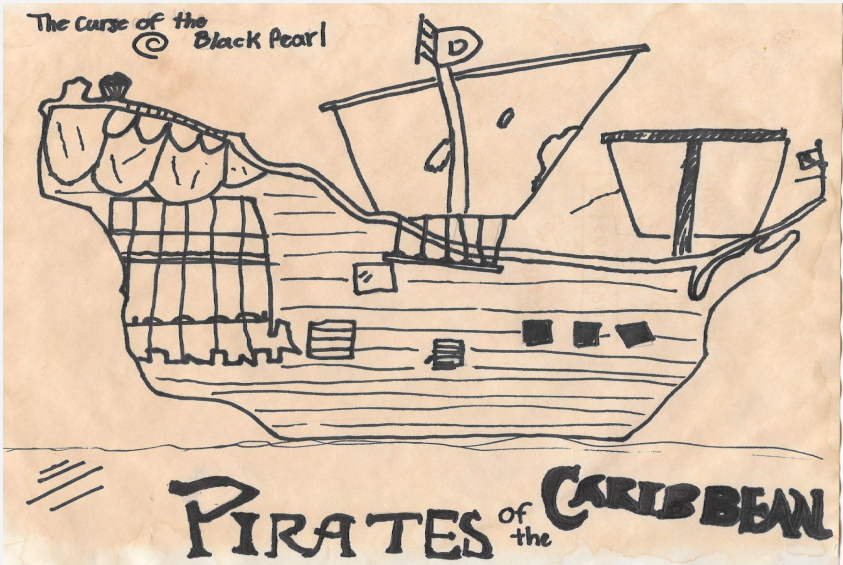 The Curse of the
Black Pearl
D
PIRATES of the CARIBBEAN